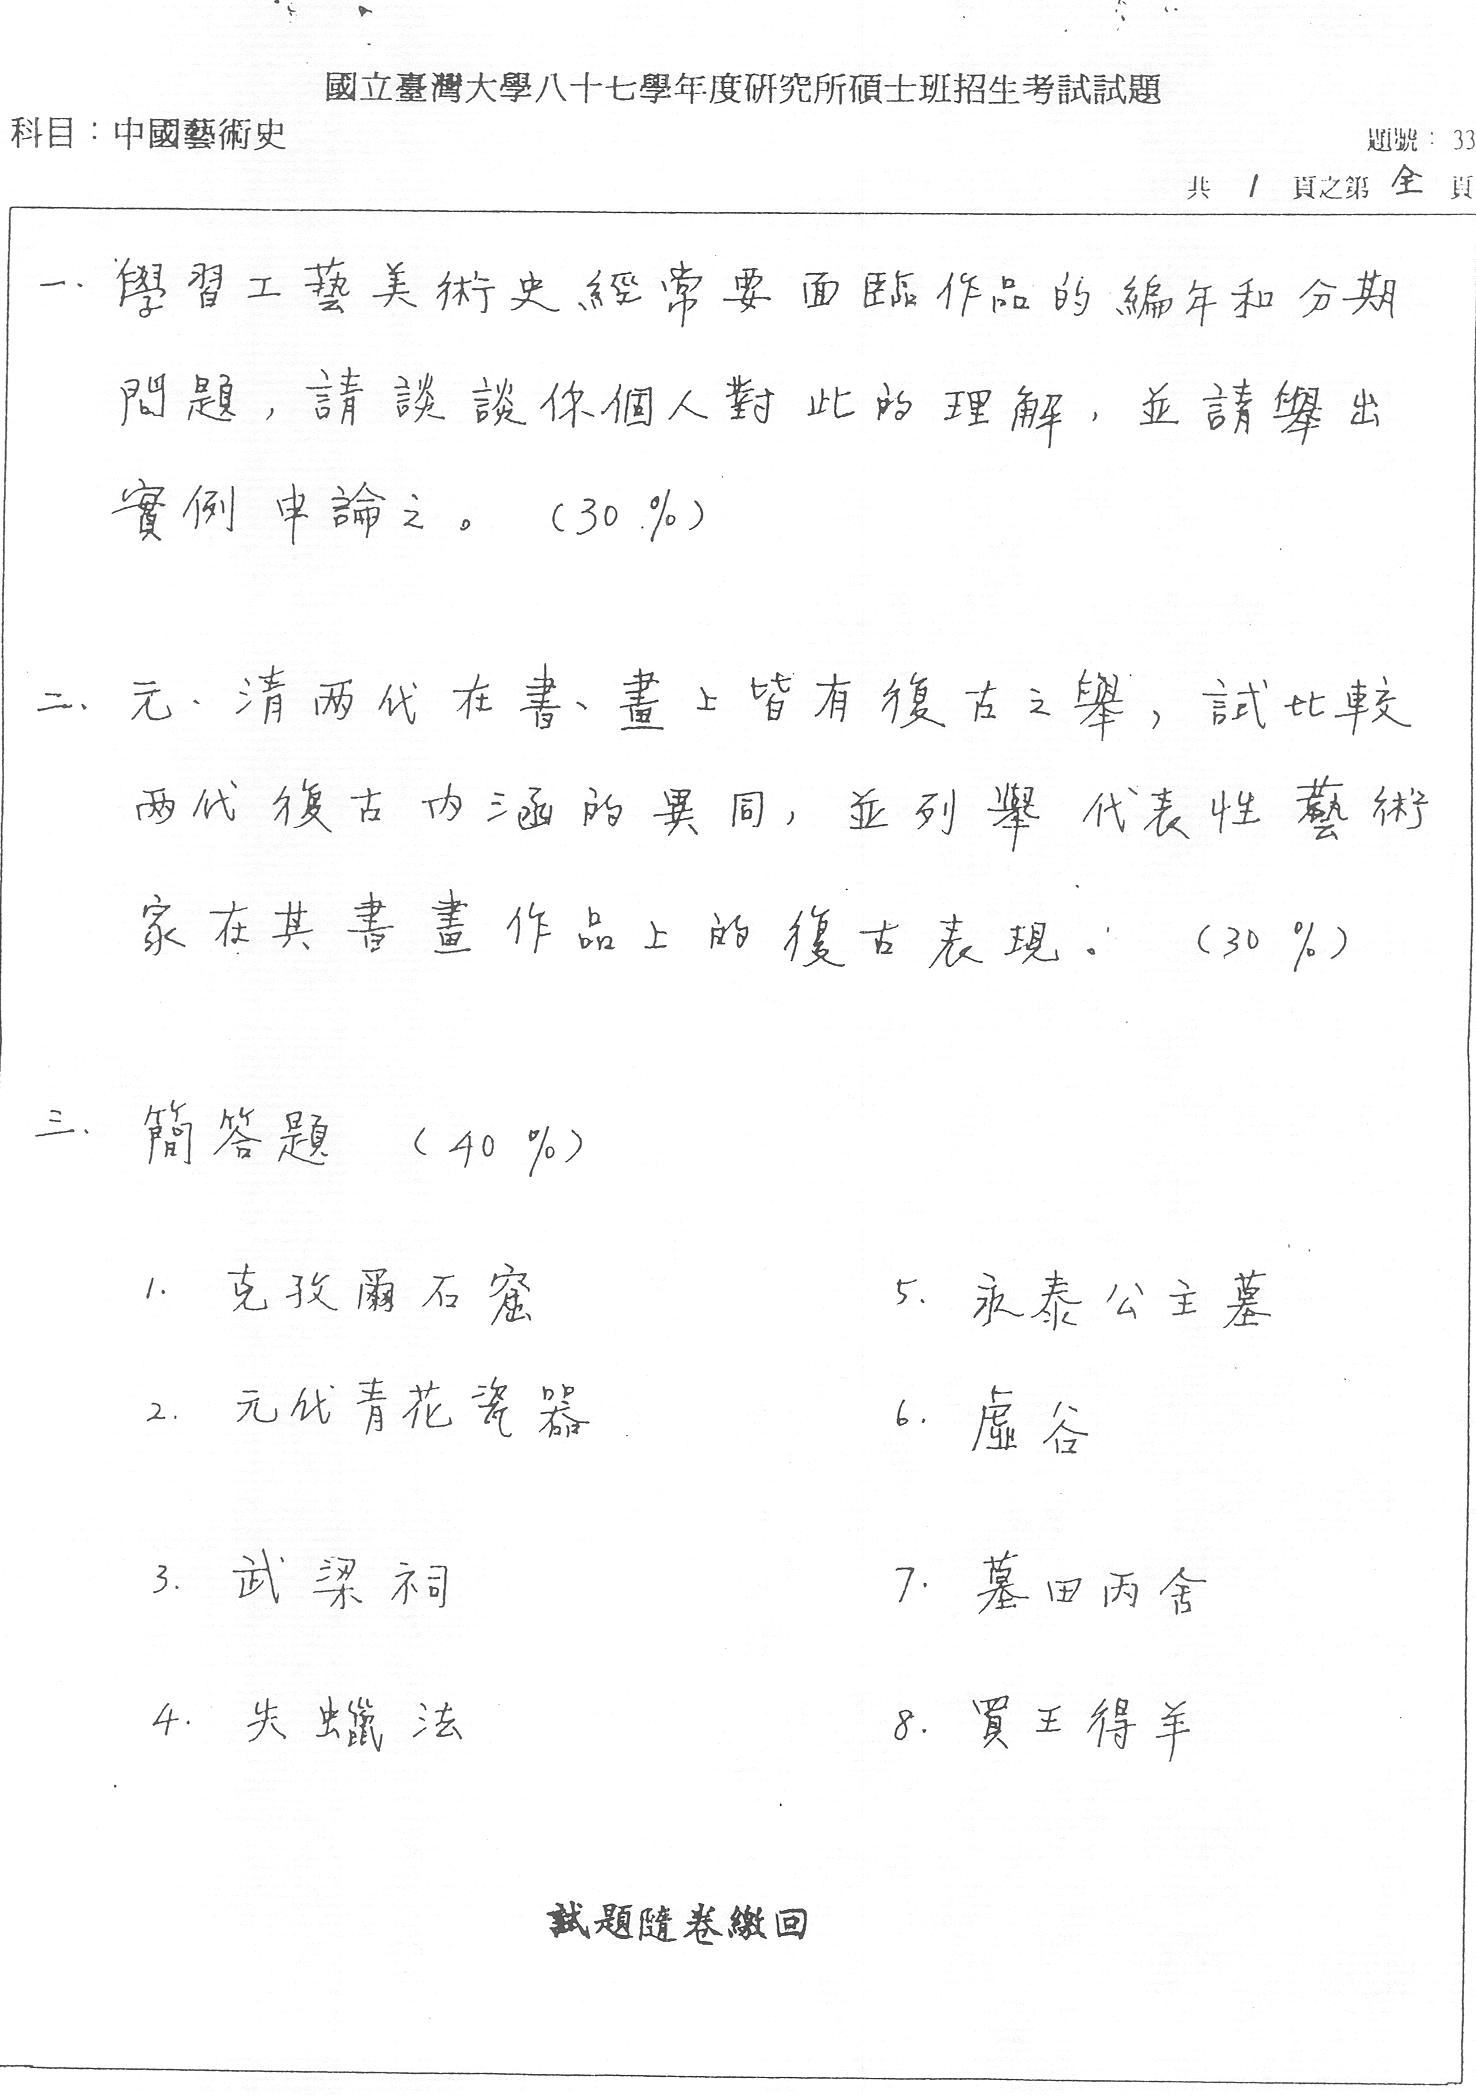 國立臺灣大學八十七學年度研究所碩士班招生考試試題
科目：中國藝術史
題號：33
共 1 頁之第 全 頁
一、學習工藝美術史經常要面臨作品的編年和分期
問題，請談談你個人對此的理解，並請舉出
實例申論之。（30%）
二、元、清兩代在書、畫上皆有復古之舉，試比較
兩代復古內涵的異同，並列舉代表性藝術
家在其書畫作品上的復古表現。（30%）
三、簡答題（40%）
1. 克孜爾石窟
2. 元代青花瓷器
3. 武梁祠
4. 失蠟法
5. 永泰公主墓
6. 虛谷
7. 墓田丙舍
8. 買王得羊
試題隨卷繳回